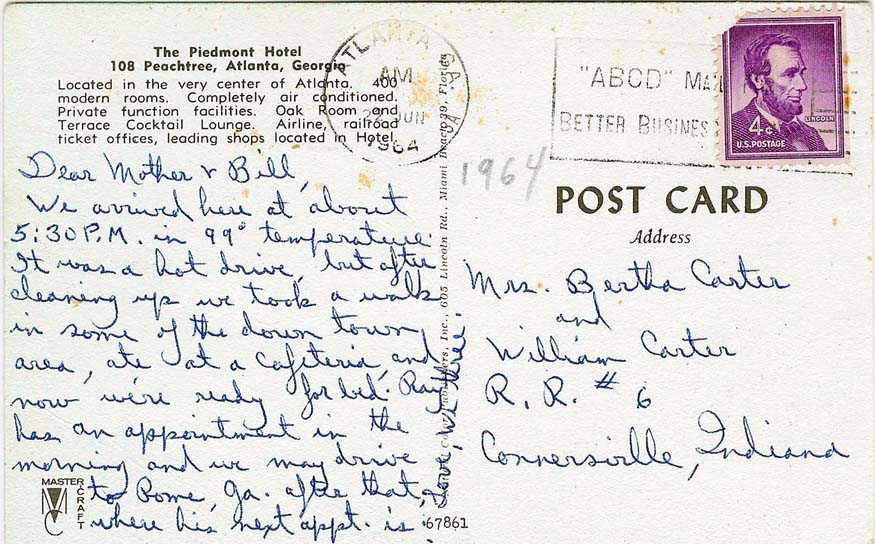 The Piedmont Hotel
108 Peachtree, Atlanta, Georgia
Located in the very center of Atlanta. 400
modern rooms. Completely air conditioned.
Private function facilities. Oak Room and
Terrace Cocktail Lounge. Airline, railroad
ticket offices, leading shops located in Hotel.
Dear Mother & Bill,
We arrived here at about
5:30 P.M. in 99° temperature.
It was a hot drive, but after
cleaning up we took a walk
in some of the down town
area, ate at a cafeteria, and
now we're ready for bed. Ray
has an appointment in the
morning and we may drive
to Rome, Ga. after that,
where his next appt. is.
Love, We three.
MASTER
CRAFT
67861
Publishers, Inc., 605 Lincoln Rd., Miami Beach 39, Florida
ATLANTA GA.
AM
JUN
1964
"ABCD" MAIL
BETTER BUSINES
4¢
LINCOLN
U.S. POSTAGE
1964
POST CARD
Address
Mrs. Bertha Carter
and
William Carter
R. R. # 6
Connersville, Indiana